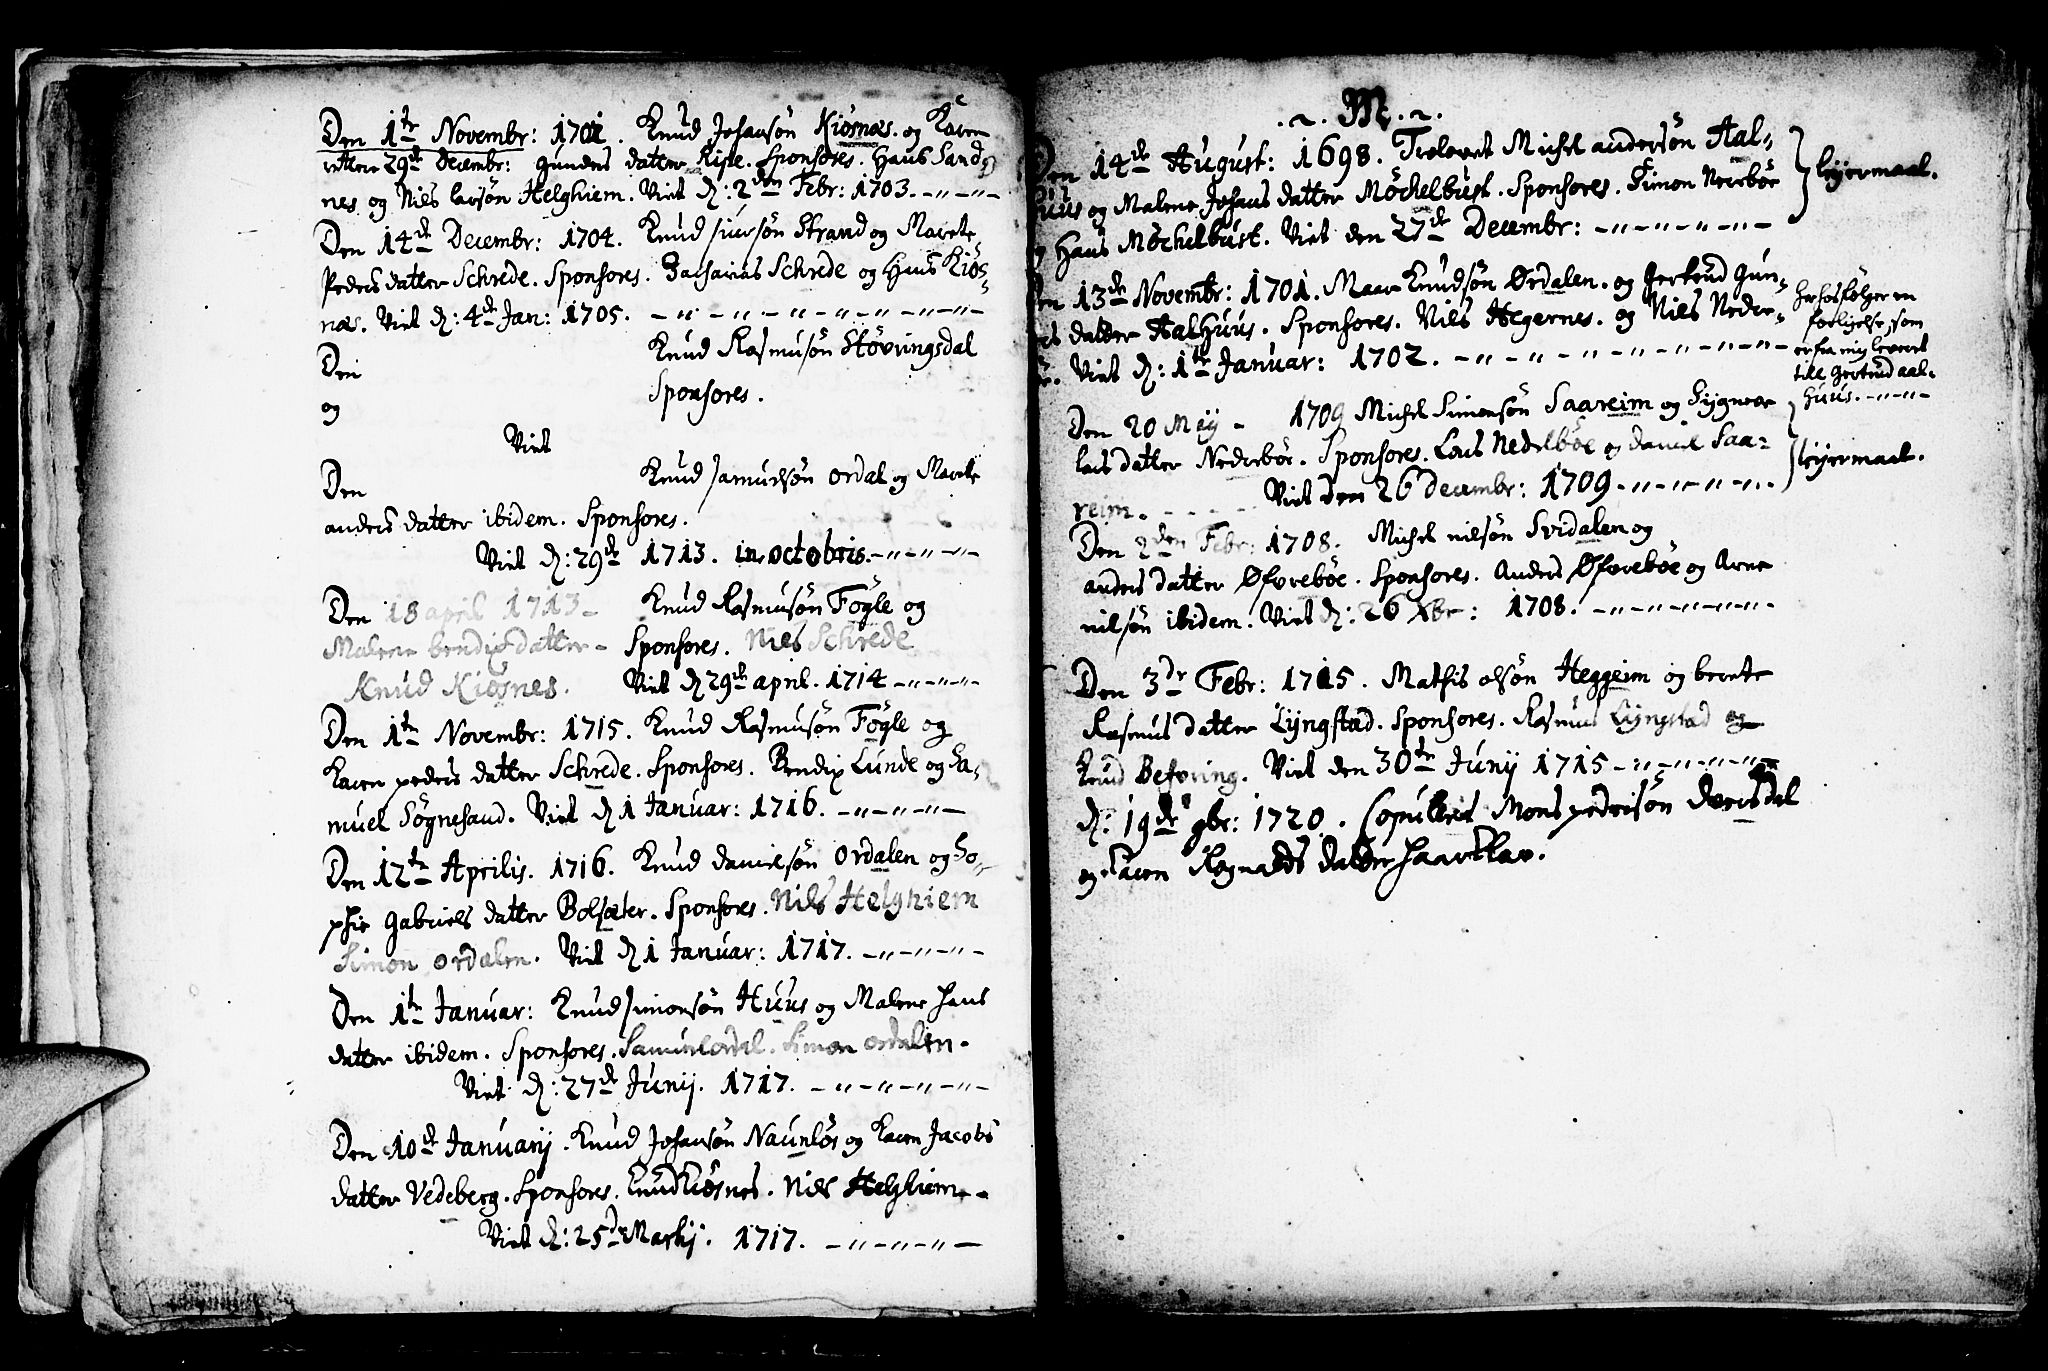 Den 1te Novembr: 1701. Knud Johansön Kiösnæs. og Karen
etter 29de Decembr: Gunders datter Ripe. Sponsores. Hans Sand
nes og Niels larsön Helghiem. Viet d: 2den Febr: 1703. -"-"-
Den 14de Decembr: 1704. Knud siursön Strand og Marete
Peders datter Schrede. Sponsores. Zacharias Schrede og Hans Kiös-
næs. Viet d: 4de Jan: 1705. -"-"-"-"-"-"-"-
Den Knud Rasmusön Stövringsdal
og Sponsores.
Viet
Den Knud samuelsön Ordal og Marete
anders datter ibidem. Sponsores.
Viet d: 29de 1713. in octobris. -"-"-"-
Den 18 april 1713- Knud Rasmusön Fögle og
Malene bendix datter- Sponsores. Niels Schrede
Knud Kiösnes. Viet d 29de april. 1714 -"-"-"-
Den 1te Novembr: 1715. Knud Rasmusön Fögle og
Karen peders datter Schrede. Sponsores. Bendix Lunde og Sa-
muel Sögnesand. Viet d 1 Januar: 1716. -"-"-"-
Den 12te Aprilis. 1716. Knud danielsön Ordalen og So-
phie Gabriels datter Bolsæter. Sponsores. Niels Helghiem
Simon Ordalen. Viet d 1 Januar: 1717. -"-"-"-
Den 1te Januar: Knud simonsön Huus og Malene Hans
datter ibidem. Sponsores. Samuel ordal. Simon ordalen.
Viet d: 27de Junij. 1717. -"-"-"-"-
Den 10de Januarij. Knud Johansön Naunlös og Karen Jacobs
datter Vedeberg. Sponsores. Knud Kiösnes. Niels Helghiem-
Viet d: 25de Martij. 1717. -"-"-"-
~. M. ~.
Den 14de August: 1698. Trolovet Michel andersön Aal-
huus og Malene Johans datter Möchelbust. Sponsores. Simon Nereböe
og Hans Möchelbust. Viet den 27de Decembr: -"-"-"-"-
leyermaal.
Den 13de Novembr: 1701. Maar Knudsön Ørdalen. og Gertrud Gun-
datter Aalhuus. Sponsores. Niels Hegernes. og Niels Nedre-
Viet d: 1te Januar: 1702. -"-"-"-"-"-"-"-
herhos følger en
forligelse, som
er fra mig leveret
till Gertrud aal-
huus. -"-"-
Den 20 May - 1709 Michel Simonsön Saareim og Sygneve
lars datter Nedrebøe. Sponsores. Lars Nedrebøe og daniel Saa-
reim. - - - - Viet den 26 decembr: 1709 -"-"-"-
leyermaal.
Den 2den Febr: 1708. Michel nilsön Svidalen og
anders datter Øfrebøe. Sponsores. Anders Øfrebøe og Arne
nilsön ibidem. Viet d: 26 Xbr: 1708. -"-"-"-"-
Den 3de Febr: 1715. Mathis olsön Heggeim og berete
Rasmus datter Lyngstad. Sponsores. Rasmus Lyngstad og
Knud Befring. Viet den 30te Junij 1715 -"-"-"-"-
d: 19de 9br: 1720. Copulleret Mons pedersön Dvergsdal
og Karen Rognalds datter